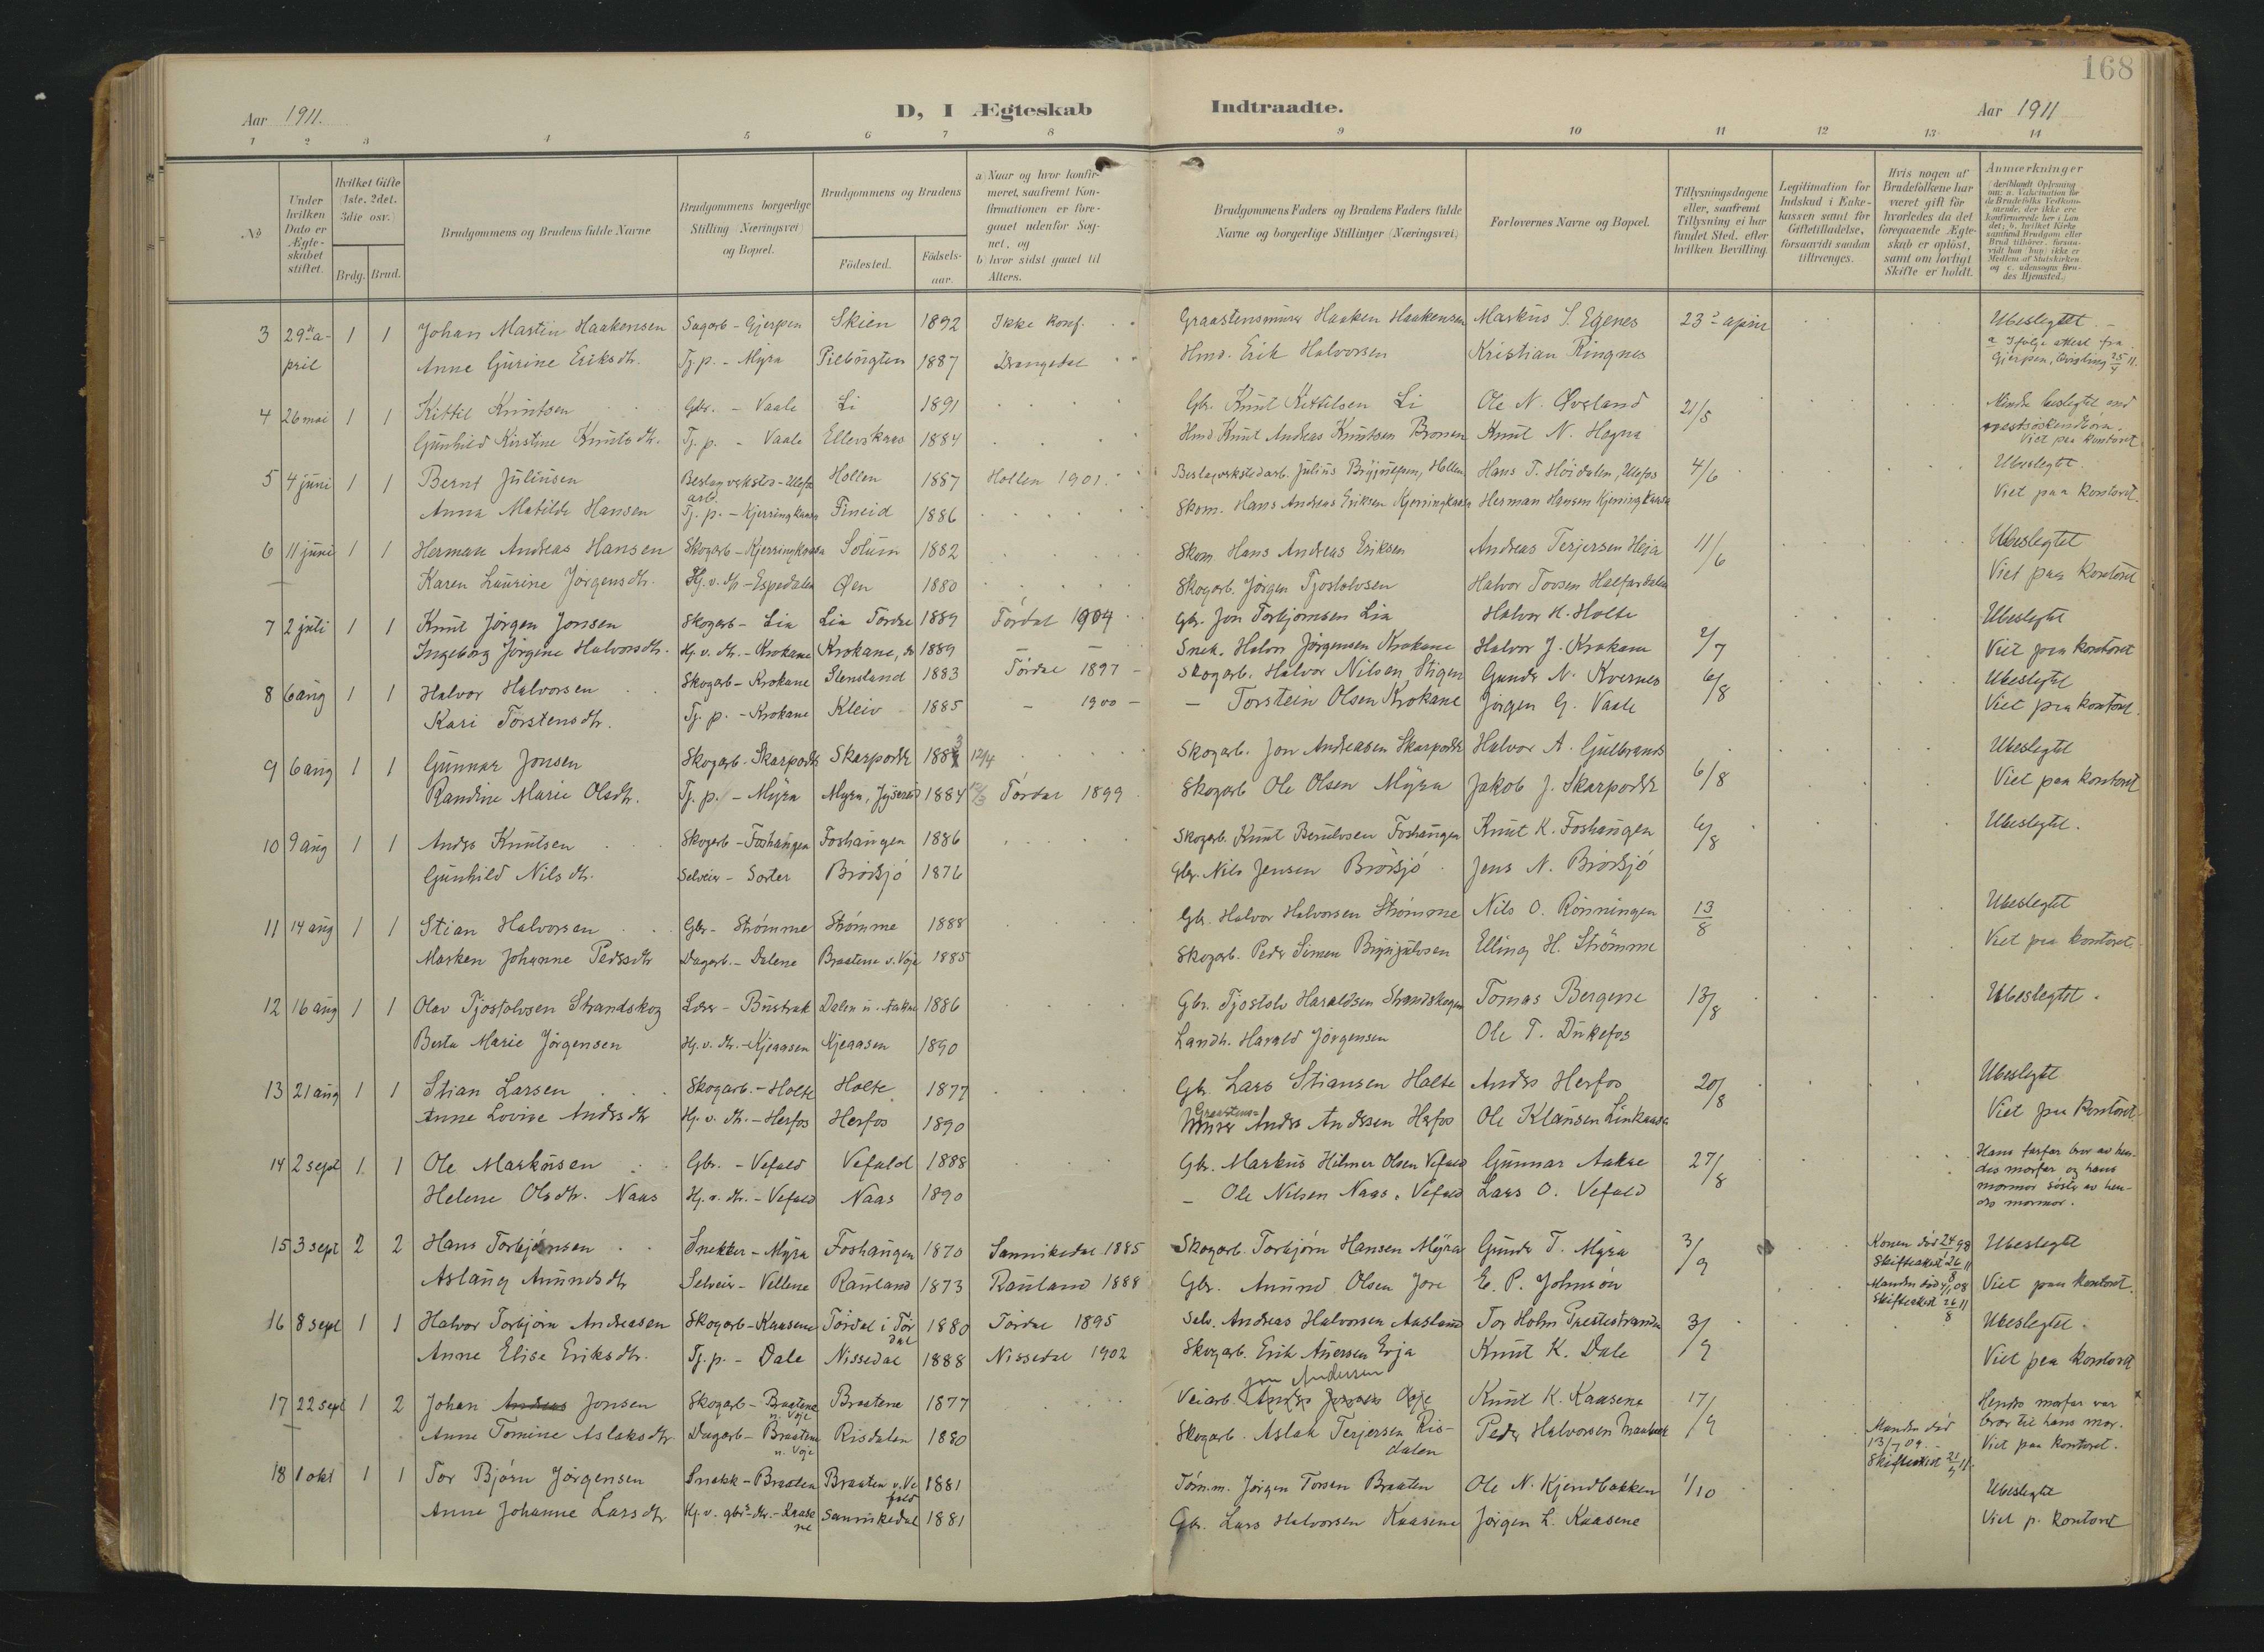 168
Aar 1911.
D, I Ægteskab
Indtraadte.
Aar 1911
1 2 3 4 5 6 7 8 9 10 11 12 13 14
No
Under hvilken Dato er Ægteskabet stiftet.
Hvilket Gifte (1ste, 2det, 3die osv.)
Brdg. Brud.
Brudgommens og Brudens fulde Navne
Brudgommens borgerlige Stilling (Næringsvei) og Bopæl.
Brudgommens og Brudens
Fødested.
Fødselsaar.
a) Naar og hvor konfirmeret, saafremt Konfirmationen er foregaaet udenfor Sognet, og
b) hvor sidst gaaet til Alters.
Brudgommens Faders og Brudens Faders fulde Navne og borgerlige Stillinger (Næringsvei)
Forlovernes Navne og Bopæl.
Tillysningsdagene eller, saafremt Tillysning ei har fundet Sted, efter hvilken Bevilling.
Legitimation for Indskud i Enkekassen samt for Giftetilladelse, forsaavidt saadan tiltrænges.
Hvis nogen af Brudefolkene har været gift før hvorledes da det foregaaende Ægteskab er opløst, samt om lovligt Skifte er holdt.
Anmærkninger
(deriblandt Oplysning om: a. Vakcination for de Brudefolks Vedkommende, der ikke ere konfirmerede her i Landet; b. hvilket Kirkesamfund Brudgom eller Brud tilhører, forsaavidt han (hun) ikke er Medlem af Statskirken, og c. udensogns Brudes Hjemsted.)
3 29de april 1 1 Johan Martin Haakensen Sagarb - Gjerpen Skien 1892 Ikke konf. Graastensmurer Haaken Haakensen Markus S. Egenes 23de april Ubeslegtet.
a Ifølge attest fra Gjerpen, Qvisling 25/4 11.
Anne Gurine Eriksdtr. Tj.p. - Myra 1887 Drangedal Hmd. Erik Halvorsen Kristian Ringnes
4 26 mai 1 1 Kittil Knutsen Gbr. - Vaale Li 1891 Gbr. Knut Kittilsen Li Ole N. Øveland 21/5 Mindre beslegtet end
Gunhild Kirstine Knutsdtr. Tj.p. - Vaale Ellevskaas 1884 Hmd. Knut Andreas Knutsen Knut N. Hagna
Viet paa kontoret
5 4 juni 1 1 Bernt Juliusen Beslagverksted-arb. Ulefos Hollen 1887 Hollen 1901. Beslagverkstedarb. Julius Brynjulsen, Hollen Hans T. Høidalen, Ulefos 4/6 Ubeslegtet.
Anna Matilde Hansen Tj.p. - Kjerringkaasa Fineid 1886 Skom. Hans Andreas Eriksen Kjerringkaasa Herman Hansen Kjerringkaasa Viet paa kontoret.
6 11 juni 1 1 Herman Andreas Hansen Skogarb - Kjerringkaasa Solum 1882 Skom. Hans Andreas Eriksen Andreas Terjersen Heja 11/6 Ubeslegtet
Karen Laurine Jørgensdtr. Hj.v. dtr - Espedalen Øen 1880 Skogarb. Jørgen Tjostolvsen Halvor Tovsen Halfardalen Viet paa kontoret
7 2 juli 1 1 Knut Jørgen Jonsen Skogarb - Lia Lia Tørdal 1889 Tørdal 1904 Gbr. Jon Torbjørnsen Lia Halvor K. Holte 2/7 Ubeslegtet
Ingeborg Jørgine Halvorsdtr. Hj.v. dtr. - Krokane Krokane, do 1889 Snek. Halvor Jørgensen Krokane Halvor J. Krokane Viet paa kontoret
8 6 aug 1 1 Halvor Halvorsen Skogarb - Krokane Stensland 1883 Tørdal 1897 Skogarb. Halvor Nilsen Stigen Gunder N. Kvernes 6/8 Ubeslegtet
Kari Torstensdtr. Tj.p. - Krokane Kleiv 1885 — 1900 — Torstein Olsen Krokane Jørgen G. Vaale Viet paa kontoret.
9 6 aug 1 1 Gunnar Jonsen Skogarb. Skarpodt Skarpodt 1883 12/4 Skogarb. Jon Andreasen Skarpodt Halvor A. Gulbrands 6/8 Ubeslegtet
Randine Marie Olsdtr. Tj.p. - Myra Myra, 1884 Tørdal 1899 Skogarb Ole Olsen Myra Jakob J. Skarpodt Viet paa kontoret
10 9 aug 1 1 Anders Knutsen Skogarb - Foshaugen Foshaugen 1886 Skogarb. Knut Berulvsen Foshaugen Knut K. Foshaugen 6/8 Ubeslegtet.
Gunhild Nilsdtr. Selveier - Sorter Brødsjø 1876 Gbr. Nils Jensen Brødsjø Jens N. Brødsjø
11 14 aug 1 1 Stian Halvorsen Gbr - Strømme Strømme 1888 Gbr. Halvor Halvorsen Strømme Nils O. Rønningen 13/8 Ubeslegtet
Marken Johanne Pedersdtr Dagarb. - Dalene Braatene v. Voje 1885 Skogarb. Peder Simen Brynjulvsen Elling H. Strømme Viet paa kontoret.
12 16 aug 1 1 Olav Tjostolvsen Strandskog Lærer - Bustrak Dalen u. Aakre 1886 Gbr. Tjostolv Haraldsen Strandskogen Tomas Bergene 13/8 Ubeslegtet.
Berta Marie Jørgensen Hj.v. dtr. - Kjeaasen Kjeaasen 1890 Landh. Harald Jørgensen Ole T. Dukefos
13 21 aug 1 1 Stian Larsen Skogarb. - Holte Holte 1877 Gbr. Lars Stiansen Holte Anders Herfos 20/8 Ubeslegtet
Anne Lovise Andersdtr Hj.v. dtr. - Herfos Herfos 1890 Graastensmurer Anders Andersen Herfos Ole Klausen Linkaasa Viet paa kontoret.
14 2 sept 1 1 Ole Markusen Gbr. - Vefald Vefald 1888 Gbr. Markus Hilmer Olsen Vefald Gunnar Aakre 27/8 Hans farfar bror av hendes morfar og hans mormor søster av hendes mormor.
Helene Olsdtr. Naas Hj.v. dtr. - Vefald Naas 1890 — Ole Nilsen Naas, Vefald Lars O. Vefald
15 3 sept 2 2 Hans Torbjørnsen Snekker - Myra Foshaugen 1870 Sannikedal 1885 Skogarb. Torbjørn Hansen Myra Gunder T. Myra 3/9 Konen død 24/1 98 Skifteattest 26/8 11 Ubeslegtet
Aslaug Aanundsdtr Selveier - Vellene Rauland 1873 Rauland 1888 Gbr. Aanund Olsen Jore E. P. Johnsøn Manden død 4/1 08 Skifteattest 26/8 11 Viet paa kontoret.
16 8 sept 1 1 Halvor Torbjørn Andreasen Skogarb - Kaasene Tørdal i Tørdal 1880 Tørdal 1895 Selv. Andreas Halvorsen Aasland Tor Holm Prestestranda 3/9 Ubeslegtet.
Anne Elise Eriksdtr. Tj.p. - Dale Nissedal 1888 Nissedal 1902 Skogarb. Erik Aversen Erja Knut K. Dale Viet paa kontoret
17 22 sept 1 2 Johan Andreas Jonsen Skogarb - Braatene n. Voje Braatene 1877 Veiarb. Jon Andersen Voje Knut K. Kaasene 17/9 Hendes morfar var bror til hans mor.
Anne Tomine Aslaksdtr Dagarb - Braatene n. Voje Risdalen 1880 Skogarb. Aslak Terjersen Risdalen Peder Halvorsen Manden død 13/7 09. Skifteattest 21/9 11. Viet paa kontoret.
18 1 okt 1 1 Tor Bjørn Jørgensen Snekk - Braaten Braaten v. Vefald 1881 Tømm. Jørgen Torsen Braaten Ole N. Kjendbakken 1/10 Ubeslegtet
Anne Johanne Larsdtr Hj.v. gbr's dtr. - Kaasene Sannikedal 1881 Gbr. Lars Halvorsen Kaasene Jørgen L. Kaasene Viet p. kontoret